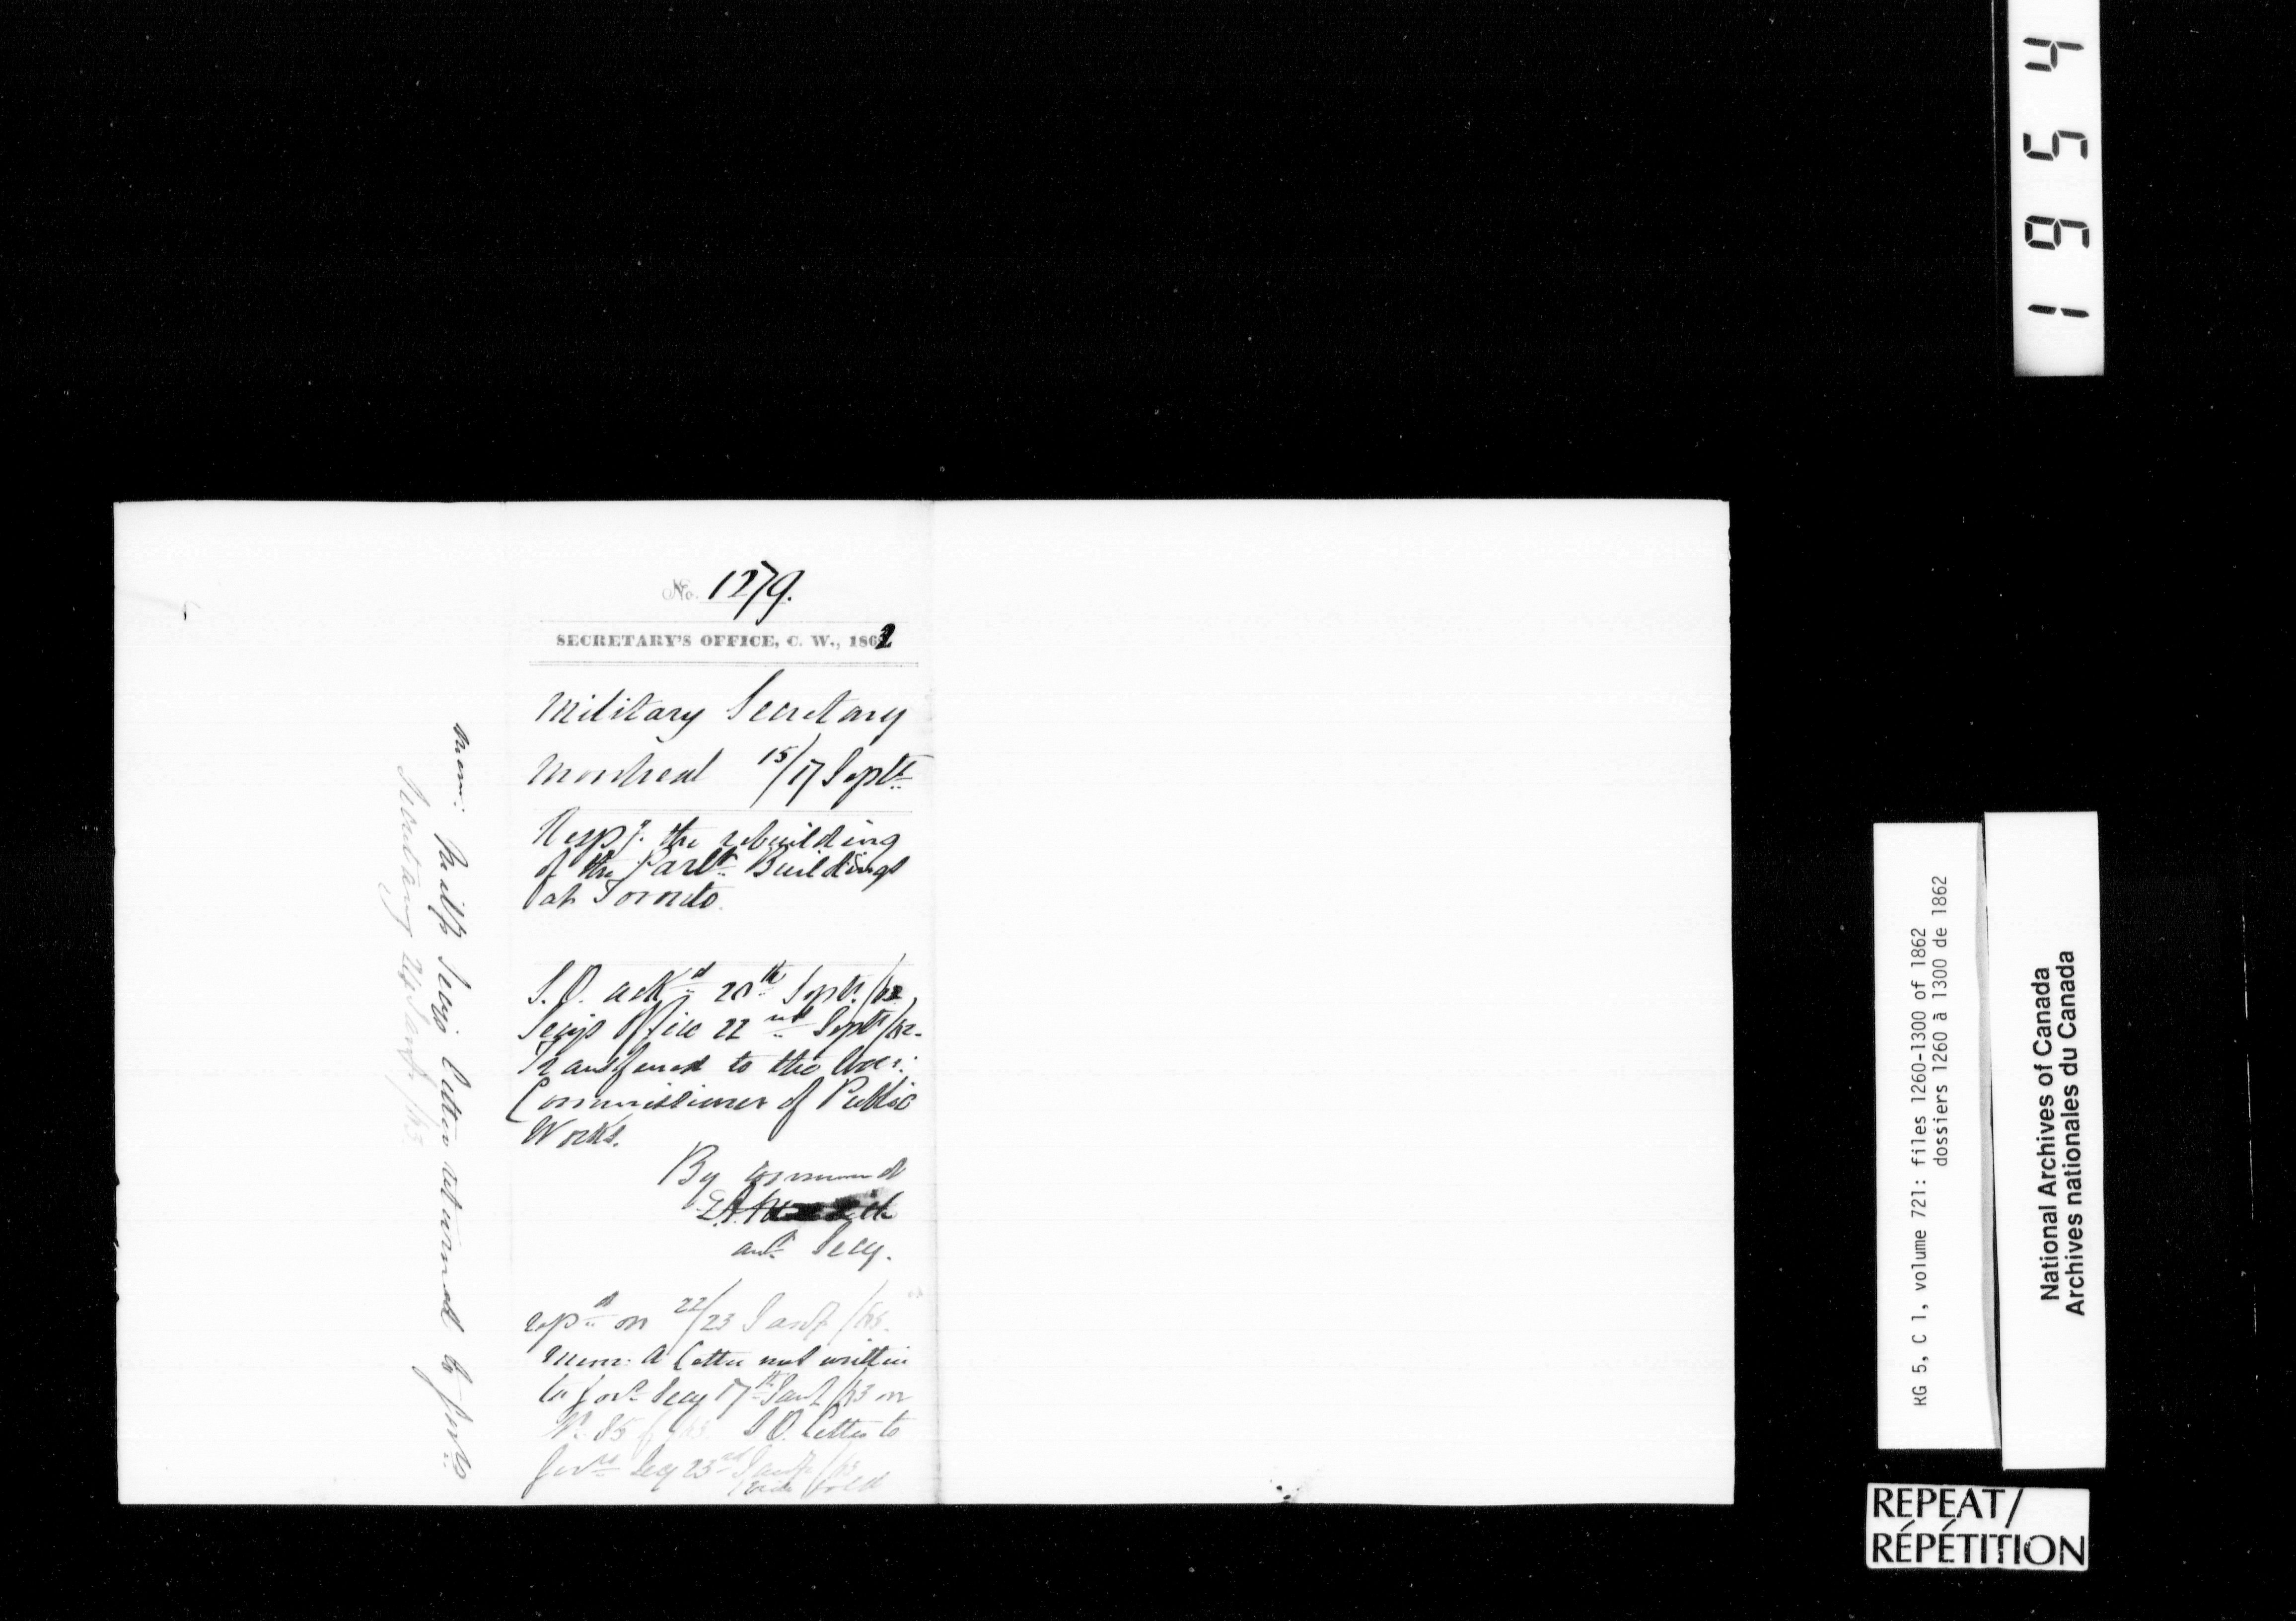 No. 1279.
SECRETARY'S OFFICE, C. W., 1862
Military Secretary
Montreal 15/17 Septr
Respg. the rebuilding
of the Parlt Buildings
at Toronto.
S. O. ackd 20th Septr. /62,
Secy's Office 22nd Septr /62.
Transferred to the
Commissioner of Public
Works.
By command
E. A.
asst Secy.
repd on 22/23 Jany /63.
Mem: A Letter was written
to Govr Secy 17th Jany /63 on
No. 85 of /63. S O. Letter to
Govrs Secy 23rd Jany /63
vide fold
Mem: Mility Secys Letter returned to Govrs
Secretary 24 Jany /63.
1954
RG 5, C 1, volume 721: files 1260-1300 of 1862
dossiers 1260 à 1300 de 1862
National Archives of Canada
Archives nationales du Canada
REPEAT/
RÉPÉTITION